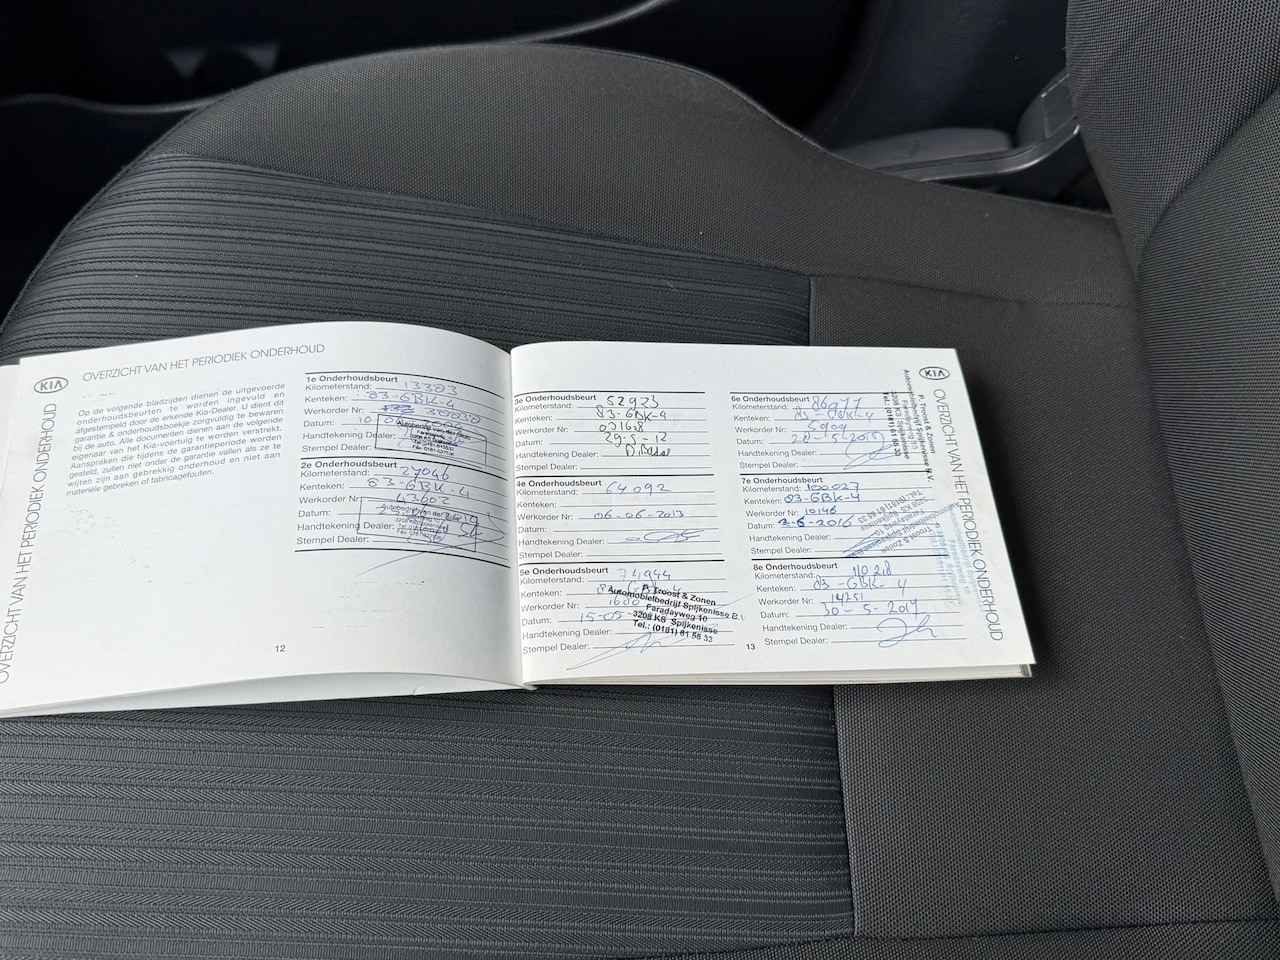 KIA
OVERZICHT VAN HET PERIODIEK ONDERHOUD
OVERZICHT VAN HET PERIODIEK ONDERHOUD
Op de volgende bladzijden dienen de uitgevoerde
onderhoudsbeurten te worden ingevuld en
afgestempeld door de erkende Kia-Dealer. U dient dit
garantie & onderhoudsboekje zorgvuldig te bewaren
bij de auto. Alle documenten dienen aan de volgende
eigenaar van het Kia-voertuig te worden verstrekt.
Aanspraken die tijdens de garantieperiode worden
gesteld, zullen niet onder de garantie vallen als ze te
wijten zijn aan gebrekkig onderhoud en niet aan
materiële gebreken of fabricagefouten.
1e Onderhoudsbeurt
Kilometerstand: 13383
Kenteken: 83-GBK-4
Werkorder Nr: 38030
Datum: 10
Handtekening Dealer:
Stempel Dealer:
2e Onderhoudsbeurt
Kilometerstand: 27046
Kenteken: 83-GBK-4
Werkorder Nr: 43602
Datum:
Handtekening Dealer:
Stempel Dealer:
12
3e Onderhoudsbeurt
Kilometerstand: 52923
Kenteken: 83-GBK-4
Werkorder Nr: 031678
Datum: 29-5-12
Handtekening Dealer:
Stempel Dealer:
4e Onderhoudsbeurt
Kilometerstand: 64092
Kenteken:
Werkorder Nr: 06-06-2013
Datum:
Handtekening Dealer:
Stempel Dealer:
5e Onderhoudsbeurt
Kilometerstand: 74944
Kenteken:
Werkorder Nr:
Datum: 15-05
Handtekening Dealer:
Stempel Dealer:
P. Troost & Zonen
Automobielbedrijf Spijkenisse B.V.
Faradayweg 10
3208 KS Spijkenisse
Tel.: (0181) 61 58 33
13
6e Onderhoudsbeurt
Kilometerstand: 86977
Kenteken: 83-GBK-4
Werkorder Nr: 5909
Datum: 20-5-2015
Handtekening Dealer:
Stempel Dealer:
7e Onderhoudsbeurt
Kilometerstand: 100027
Kenteken: 83-GBK-4
Werkorder Nr: 10146
Datum: 2-6-2016
Handtekening Dealer:
Stempel Dealer:
8e Onderhoudsbeurt
Kilometerstand: 110218
Kenteken: 83-GBK-4
Werkorder Nr: 14251
Datum: 30-5-2017
Handtekening Dealer:
Stempel Dealer:
P. Troost & Zonen
Automobielbedrijf Spijkenisse B.V.
Faradayweg 10
3208 KS Spijkenisse
Tel.: (0181) 61 58 33
KIA
OVERZICHT VAN HET PERIODIEK ONDERHOUD